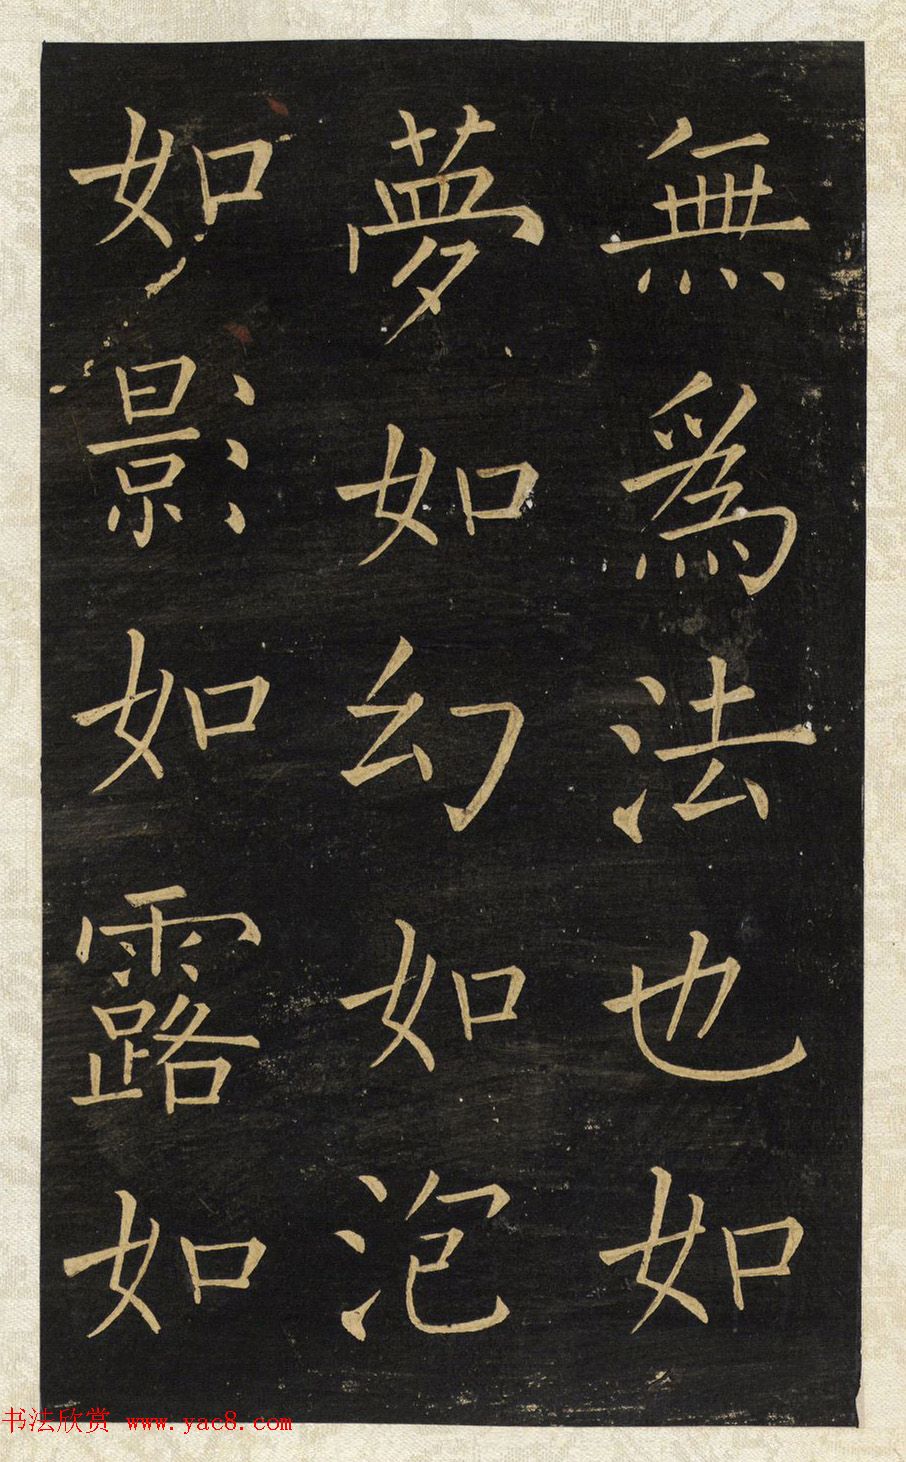 無為法也如
夢如幻如泡
如影如露如
书法欣赏 www.yac8.com